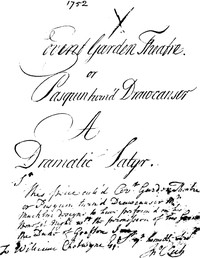 1752
X
Covent Garden Theatre.
or
Pasquin turn'd Drawcansir
A
Dramatic Satyr.
Sr
This Peice call'd Cont Garden Theatre
or Pasquin turn'd Drawcansir Mr
Macklin designs to have perform'd at
with the permission of
the Duke of Grafton
To William Chetwynd Esqr